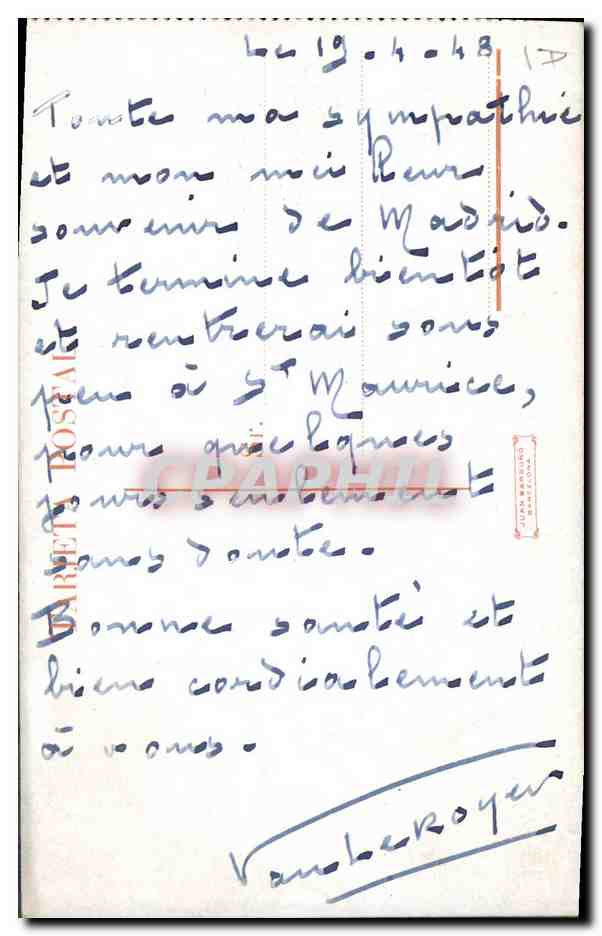 Le 19.4.48
Toute ma sympathie
et mon meilleur
souvenir de Madrid.
Je termine bientôt
et rentrerai sous
peu à St Maurice,
pour quelques
jours seulement
sans doute.
Bonne santé et
bien cordialement
à vous.
TARJETA POSTAL
JUAN BARGUÑO
BARCELONA
CPAPHIL